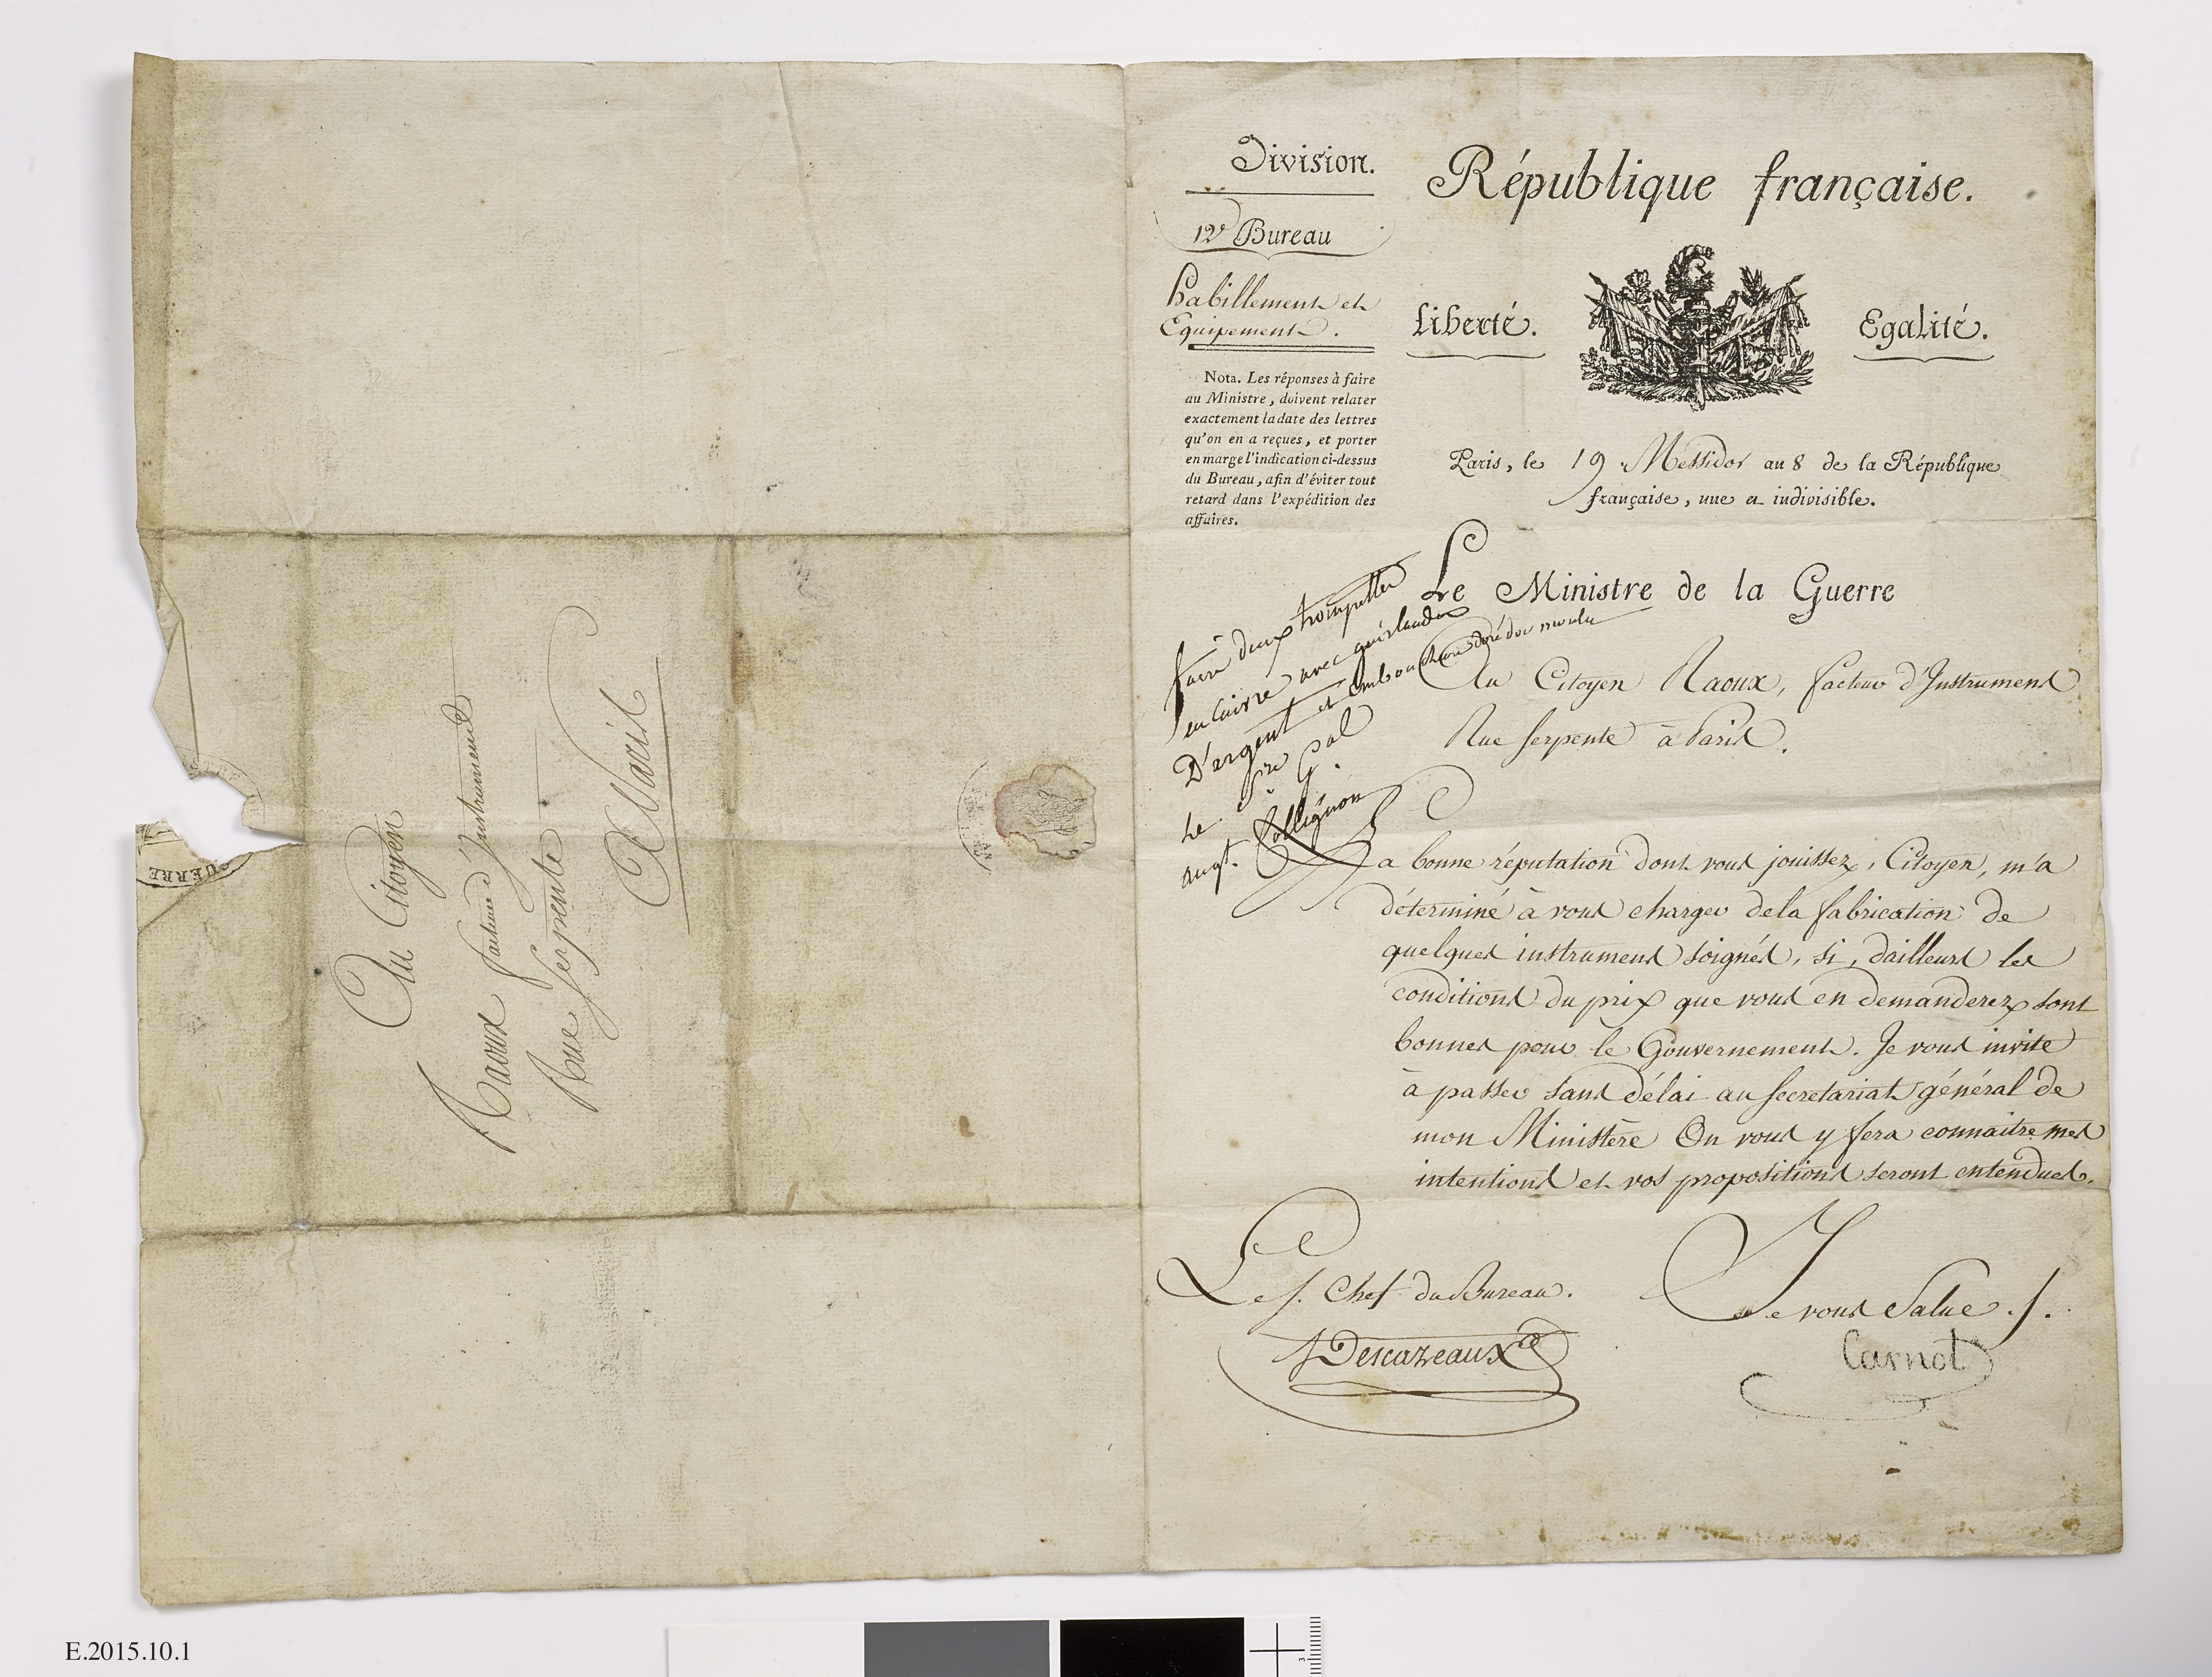 Au Citoyen
Raoux facteur d'Instrumens
Rue Serpente
A Paris
GUERRE
Division.
12e Bureau
habillement et
Equipement.
Nota. Les réponses à faire
au Ministre, doivent relater
exactement la date des lettres
qu'on en a reçues, et porter
en marge l'indication ci-dessus
du Bureau, afin d'éviter tout
retard dans l'expédition des
affaires.
République française.
Liberté.
Egalité.
Paris, le 19 Messidor an 8 de la République
française, une et indivisible.
Le Ministre de la Guerre
Au Citoyen Raoux, facteur d'Instrumens
Rue Serpente à Paris.
faire deux trompettes
en cuivre avec guirlandes
D'argent et embouchure doré d'or moulu
Le Sre Gal
Augt. Collignon
La bonne réputation dont vous jouissez, Citoyen, m'a
déterminé à vous charger de la fabrication de
quelques instrumens soignés, si, d'ailleurs les
conditions du prix que vous en demanderez sont
bonnes pour le Gouvernement. Je vous invite
à passer sans délai au secretariat général de
mon Ministère On vous y fera connaitre mes
intentions et vos propositions seront entendues.
Le s. Chef du Bureau.
Descazeaux
Je vous Salue ./.
Carnot
E.2015.10.1